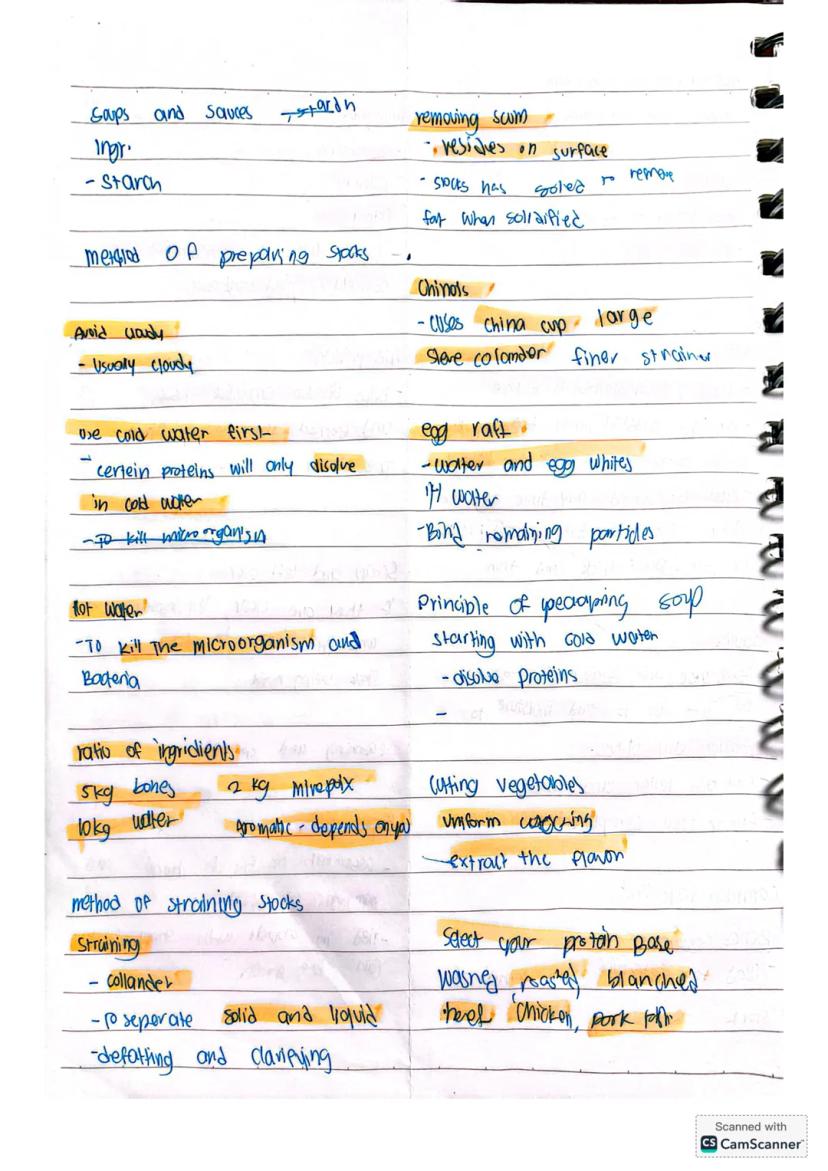 Soups and sauces starch
Ingr.
- Starch
method OF preparing stocks -
Avoid cloudy
- Usually cloudy
use cold water first
- certein proteins will only disolve
in cold water
- To kill microorganism
Hot water
- To kill The microorganism and
Bacteria
ratio of ingridients
5kg bones 2 kg mirepoix
10kg water Aromatic - depends on you
method OF straining stocks
Straining
- collander
- To seperate solid and liquid
- defatting and clarifying
removing scum
- residies on surface
- stocks has to remove
fat when solidified
Chinois
- uses china cup large
Sieve colander finer strainer
egg raft
- water and egg whites
1/4 water
- Bind remaining particles
Principle of soup
starting with cold water
- disolve proteins
-
Cutting vegetables
uniform
- extract the flavor
Select your protein Base
washed roasted, blanched
beef, chicken, pork
Scanned with
CS CamScanner